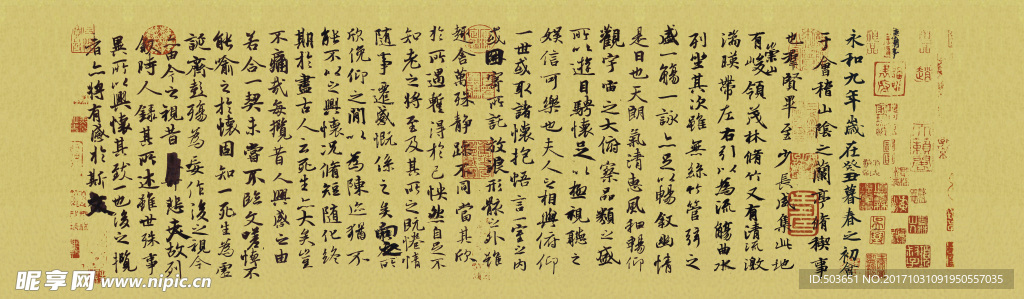 永和九年歲在癸丑暮春之初會
于會稽山陰之蘭亭脩稧事
也羣賢畢至少長咸集此地
有崇山峻領茂林脩竹又有清流激
湍暎帶左右引以為流觴曲水
列坐其次雖無絲竹管弦之
盛一觴一詠亦足以暢敘幽情
是日也天朗氣清惠風和暢仰
觀宇宙之大俯察品類之盛
所以遊目騁懷足以極視聽之
娛信可樂也夫人之相與俯仰
一世或取諸懷抱悟言一室之內
或因寄所託放浪形骸之外雖
趣舍萬殊靜躁不同當其欣
於所遇蹔得於己怏然自足不
知老之將至及其所之既惓情
隨事遷感慨係之矣向之所
欣俛仰之間以為陳迹猶不
能不以之興懷況脩短隨化終
期於盡古人云死生亦大矣豈
不痛哉每攬昔人興感之由
若合一契未嘗不臨文嗟悼不
能喻之於懷固知一死生為虛
誕齊彭殤為妄作後之視今
亦由今之視昔悲夫故列
敘時人錄其所述雖世殊事
異所以興懷其致一也後之攬
者亦將有感於斯文
昵享网 www.nipic.cn
ID:503651 NO:20171031091950557035